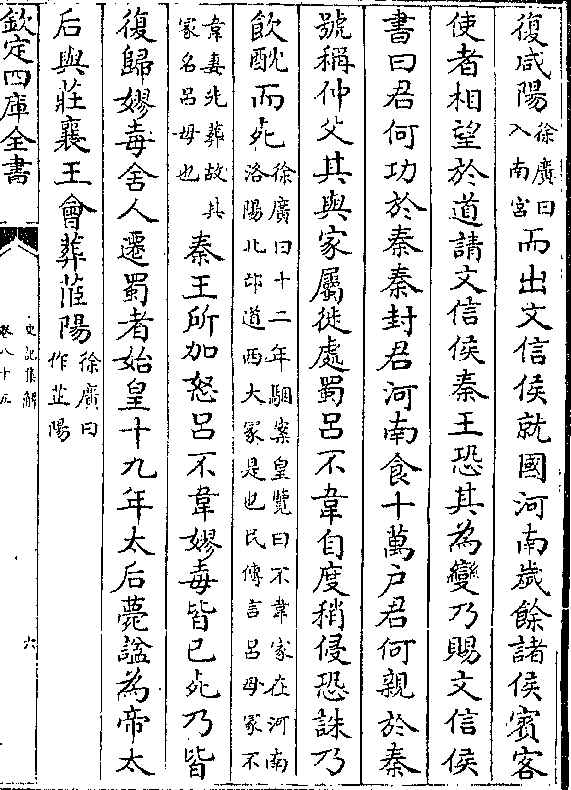 復咸陽徐廣曰入南宮而出文信侯就國河南歲餘諸侯賓客
使者相望於道請文信侯秦王恐其為變乃賜文信侯
書曰君何功於秦秦封君河南食十萬戶君何親於秦
號稱仲父其與家屬徙處蜀呂不韋自度稍侵恐誅乃
飲酖而死徐廣曰十二年駰案皇覽曰不韋冢在河南洛陽北邙道西大冢是也民傳言呂母冢不
韋妻先葬故其冢名呂母也秦王所加怒呂不韋嫪毐皆已死乃皆
復歸嫪毐舍人遷蜀者始皇十九年太后薨諡為帝太
后與莊襄王會葬茝陽徐廣曰作芷陽
欽定四庫全書
史記集解
卷八十五
六